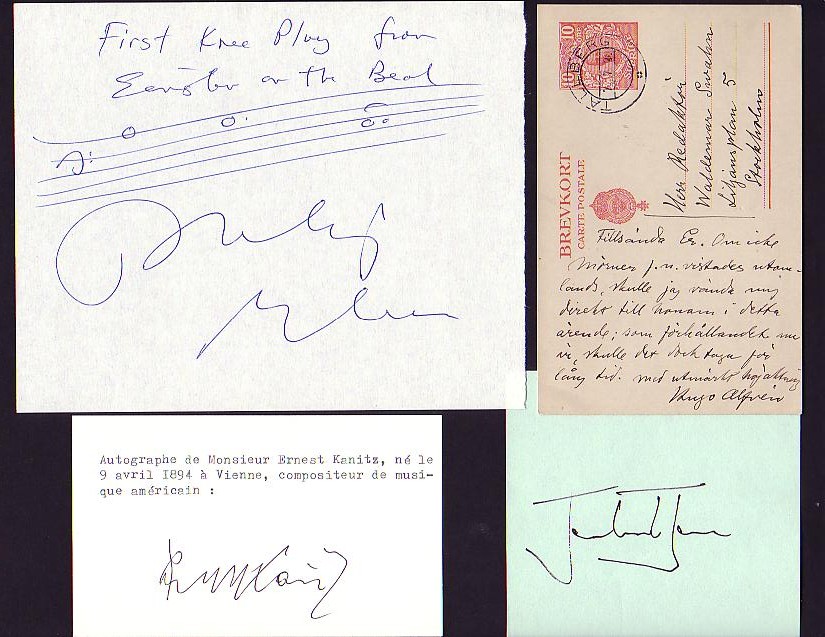 First Knee Play from
Einstein on the Beach
Philip
Glass
10 10
TÄLLBERG
BREVKORT
CARTE POSTALE
Herr Redaktör
Waldemar Swahn
Liljansplan 5
Stockholm
Tillsända Er. Om icke
Mörner f.n. vistades utom-
lands, skulle jag vända mig
direkt till honom i detta
ärende; som förhållandet nu
är, skulle det dock taga för
lång tid. Med utmärkt högaktning
Hugo Alfvén
Autographe de Monsieur Ernest Kanitz, né le
9 avril 1894 à Vienne, compositeur de musi-
que américain :